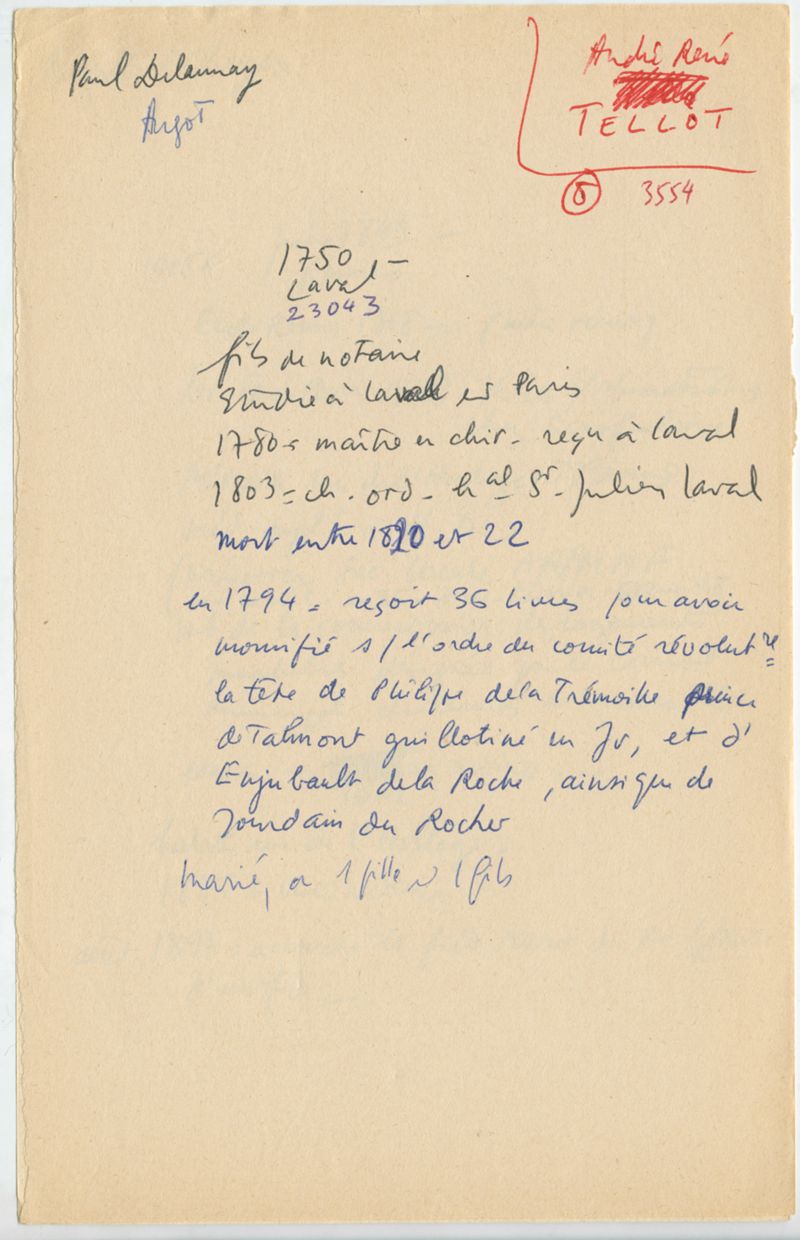 Paul Delaunay
Angot
André René
TELLOT
5 3554
1750 -
Laval
23043
fils de notaire
Etudie à Laval et Paris
1780 = maître en chir - reçu à Laval
1803 = ch. ord - hal St Julien Laval
mort entre 1820 et 22
en 1794 = reçoit 36 livres pour avoir
momifié s/ l'ordre du comité révolutre
la tête de Philippe de la Trémoille prince
de Talmont guillotiné en Jv, et d'
Enjubault de la Roche, ainsi que de
Jourdain du Rocher
Marié, a 1 fille et 1 fils